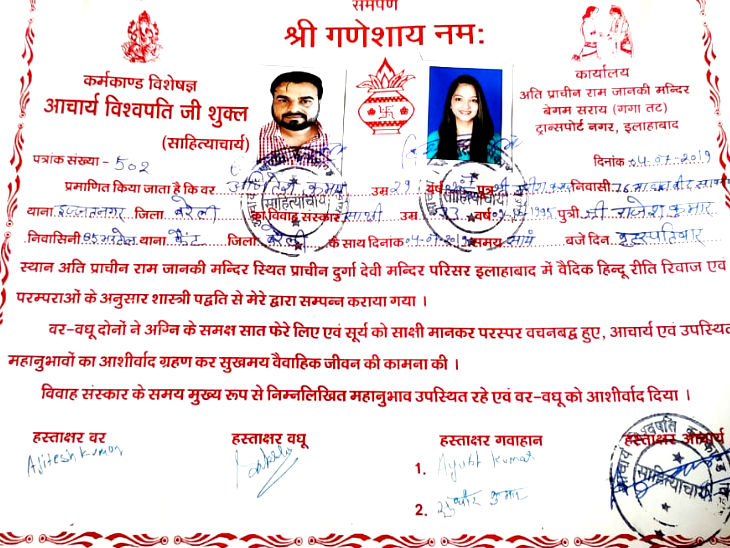 समर्पण
श्री गणेशाय नम:
कर्मकाण्ड विशेषज्ञ
आचार्य विश्वपति जी शुक्ल
(साहित्याचार्य)
कार्यालय
अति प्राचीन राम जानकी मन्दिर
बेगम सराय (गंगा तट)
ट्रान्सपोर्ट नगर, इलाहाबाद
पत्रांक संख्या - 502
दिनांक 04-07-2019
प्रमाणित किया जाता है कि वर कुमार उम्र 29 वर्ष पुत्र श्री निवासी
थाना इज्जतनगर जिला बरेली का विवाह संस्कार साक्षी उम्र 23 वर्ष पुत्री श्री राजेश कुमार
निवासिनी थाना कैंट जिला बरेली के साथ दिनाक 04-07-2019 समय सायं बजे दिन बृहस्पतिवार
स्थान अति प्राचीन राम जानकी मन्दिर स्थित प्राचीन दुर्गा देवी मन्दिर परिसर इलाहाबाद में वैदिक हिन्दू रीति रिवाज एवं
परम्पराओं के अनुसार शास्त्री पद्वति से मेरे द्वारा सम्पन्न कराया गया ।
वर-वधू दोनों ने अग्नि के समक्ष सात फेरे लिए एवं सूर्य को साक्षी मानकर परस्पर वचनबद्व हुए, आचार्य एवं उपस्थित
महानुभावों का आशीर्वाद ग्रहण कर सुखमय वैवाहिक जीवन की कामना की ।
विवाह संस्कार के समय मुख्य रूप से निम्नलिखित महानुभाव उपस्थित रहे एवं वर-वधू को आशीर्वाद दिया ।
हस्ताक्षर वर
हस्ताक्षर वधू
हस्ताक्षर गवाहान
हस्ताक्षर आचार्य
Ajitesh Kumar
1. Kumar
2. कुमार
साहित्याचार्य